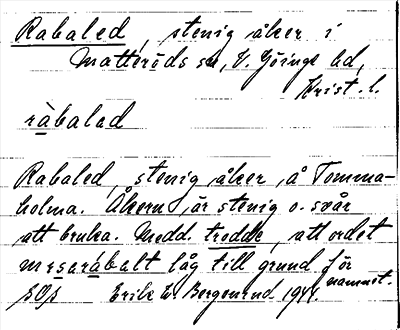 Rabaled, stenig åker i
Matteröds sn, V. Göinge hd,
Krist. l.
råbalad
Rabaled, stenig åker, å Tomma-
holma. Åkern är stenig o. svår
att bruka. Medd. trodde, att ordet
låg till grund för
namnet.
Erik W. Bergenrud 1944.